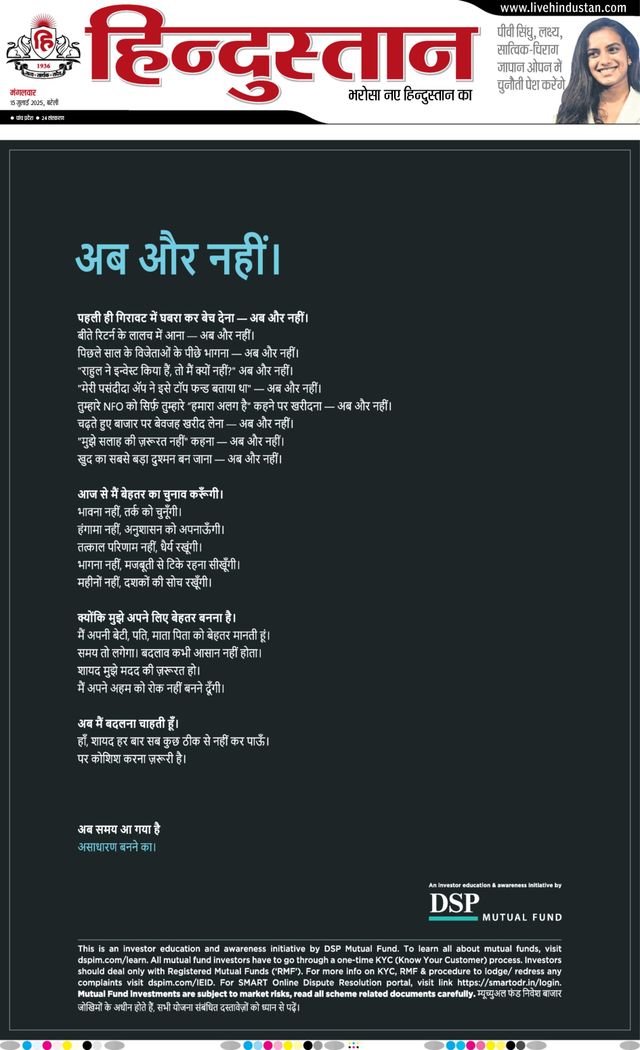 www.livehindustan.com
हिन्दुस्तान
हि
1936
मंगलवार
15 जुलाई 2025, बरेली
भरोसा नए हिन्दुस्तान का
पीवी सिंधु, लक्ष्य,
सात्विक-चिराग
जापान ओपन में
चुनौती पेश करेंगे
● पांच प्रदेश ● 24 संस्करण
अब और नहीं।
पहली ही गिरावट में घबरा कर बेच देना — अब और नहीं।
बीते रिटर्न के लालच में आना — अब और नहीं।
पिछले साल के विजेताओं के पीछे भागना — अब और नहीं।
"राहुल ने इन्वेस्ट किया हैं, तो मैं क्यों नहीं?" अब और नहीं।
"मेरी पसंदीदा ॲप ने इसे टॉप फन्ड बताया था" — अब और नहीं।
तुम्हारे NFO को सिर्फ़ तुम्हारे "हमारा अलग है" कहने पर खरीदना — अब और नहीं।
चढ़ते हुए बाजार पर बेवजह खरीद लेना — अब और नहीं।
"मुझे सलाह की ज़रूरत नहीं" कहना — अब और नहीं।
खुद का सबसे बड़ा दुश्मन बन जाना — अब और नहीं।
आज से मैं बेहतर का चुनाव करूँगी।
भावना नहीं, तर्क को चुनूँगी।
हंगामा नहीं, अनुशासन को अपनाऊँगी।
तत्काल परिणाम नहीं, धैर्य रखूंगी।
भागना नहीं, मजबूती से टिके रहना सीखूँगी।
महीनों नहीं, दशकों की सोच रखूँगी।
क्योंकि मुझे अपने लिए बेहतर बनना है।
मैं अपनी बेटी, पति, माता पिता को बेहतर मानती हूं।
समय तो लगेगा। बदलाव कभी आसान नहीं होता।
शायद मुझे मदद की ज़रूरत हो।
मैं अपने अहम को रोक नहीं बनने दूँगी।
अब मैं बदलना चाहती हूँ।
हाँ, शायद हर बार सब कुछ ठीक से नहीं कर पाऊँ।
पर कोशिश करना ज़रूरी है।
अब समय आ गया है
असाधारण बनने का।
An investor education & awareness initiative by
DSP
MUTUAL FUND
This is an investor education and awareness initiative by DSP Mutual Fund. To learn all about mutual funds, visit
dspim.com/learn. All mutual fund investors have to go through a one-time KYC (Know Your Customer) process. Investors
should deal only with Registered Mutual Funds ('RMF'). For more info on KYC, RMF & procedure to lodge/ redress any
complaints visit dspim.com/IEID. For SMART Online Dispute Resolution portal, visit link https://smartodr.in/login.
Mutual Fund Investments are subject to market risks, read all scheme related documents carefully. म्यूच्युअल फंड निवेश बाजार
जोखिमों के अधीन होते हैं, सभी योजना संबंधित दस्तावेज़ों को ध्यान से पढ़ें।